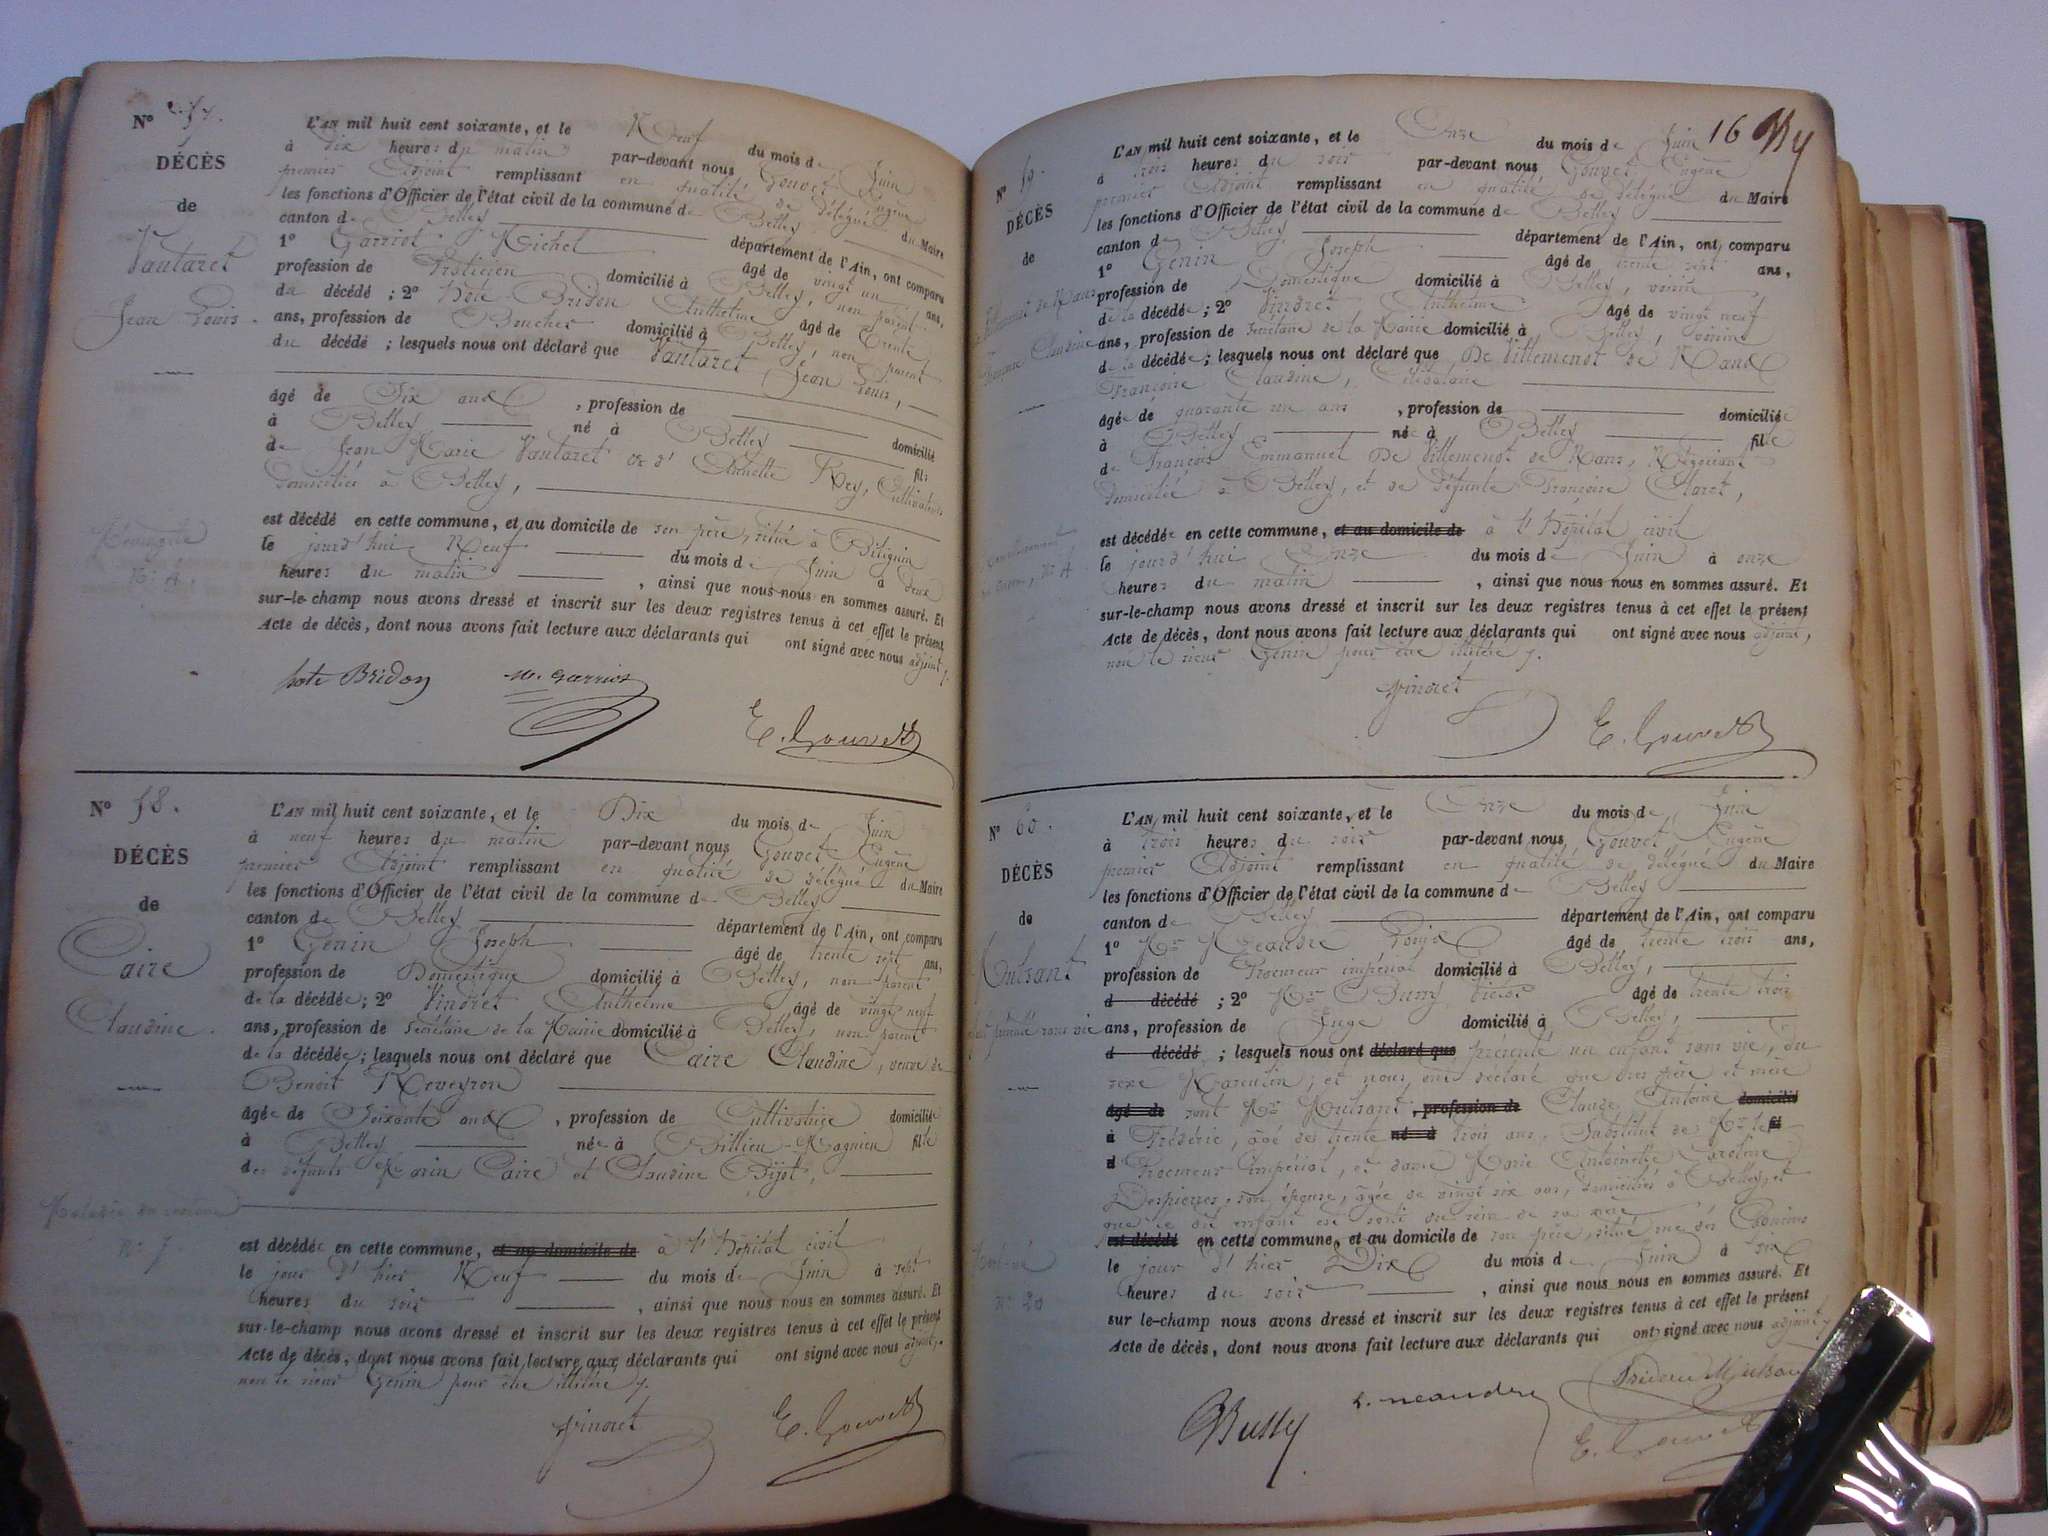 N° 57.
DÉCÈS
de
Vautaret
Jean Louis.
Méningite
N° 4.
L'AN mil huit cent soixante, et le Neuf du mois de Juin
à dix heures du matin par-devant nous Gouvet Eugène
premier Adjoint remplissant en qualité de délégué du Maire
les fonctions d'Officier de l'état civil de la commune de Belley
canton de Belley département de l'Ain, ont comparu
1° Garriot Michel âgé de vingt un ans,
profession de Praticien domicilié à Belley, non parent
du décédé ; 2° Hote-Bridon Anthelme âgé de Trente
ans, profession de Boucher domicilié à Belley, non parent
du décédé ; lesquels nous ont déclaré que Vautaret Jean Louis,
âgé de Six ans , profession de domicilié
à Belley né à Belley fils
de Jean Marie Vautaret et d' Annette Rey, Cultivateurs
domiciliés à Belley,
est décédé en cette commune, et au domicile de son père, situé à Bétignin
le jourd'hui Neuf du mois de Juin à deux
heures du matin , ainsi que nous nous en sommes assuré. Et
sur-le-champ nous avons dressé et inscrit sur les deux registres tenus à cet effet le présent
Acte de décès, dont nous avons fait lecture aux déclarants qui ont signé avec nous adjoint /.
hote Bridon m. Garriot
E. Gouvet
N° 58.
DÉCÈS
de
Caire
Claudine.
Maladie du
N° 7.
L'AN mil huit cent soixante, et le Dix du mois de Juin
à neuf heures du matin par-devant nous Gouvet Eugène
premier Adjoint remplissant en qualité de délégué du Maire
les fonctions d'Officier de l'état civil de la commune de Belley
canton de Belley département de l'Ain, ont comparu
1° Génin Joseph âgé de trente sept ans,
profession de Domestique domicilié à Belley, non parent
de la décédée ; 2° Vindret Anthelme âgé de vingt neuf
ans, profession de Secrétaire de la Mairie domicilié à Belley, non parent
de la décédée ; lesquels nous ont déclaré que Caire Claudine, veuve de
Benoît Reveyron
âgée de Soixante ans , profession de Cultivatrice domiciliée
à Belley née à Billieu-Magnieu fille
des défunts Marin Caire et Claudine Bijot,
est décédée en cette commune, et au domicile de à l'Hôpital civil
le jour d'hier Neuf du mois de Juin à sept
heures du soir , ainsi que nous nous en sommes assuré. Et
sur-le-champ nous avons dressé et inscrit sur les deux registres tenus à cet effet le présent
Acte de décès, dont nous avons fait lecture aux déclarants qui ont signé avec nous adjoint,
non le sieur Génin pour être illitéré /.
Vindret E. Gouvet
16
N° 59.
DÉCÈS
de
Villemenot de Nans
Françoise Claudine
N° 4
L'AN mil huit cent soixante, et le Onze du mois de Juin
à trois heures du soir par-devant nous Gouvet Eugène
premier Adjoint remplissant en qualité de délégué du Maire
les fonctions d'Officier de l'état civil de la commune de Belley
canton de Belley département de l'Ain, ont comparu
1° Génin Joseph âgé de trente sept ans,
profession de Domestique domicilié à Belley, voisin
de la décédée ; 2° Vindret Anthelme âgé de vingt neuf
ans, profession de Secrétaire de la Mairie domicilié à Belley, voisin
de la décédée ; lesquels nous ont déclaré que De Villemenot de Nans
Françoise Claudine, Célibataire
âgée de quarante un ans , profession de domiciliée
à Belley née à Belley fille
de François Emmanuel De Villemenot de Nans, Négociant
domicilié à Belley, et de défunte Françoise Claret,
est décédée en cette commune, et au domicile de à l'Hôpital civil
le jourd'hui Onze du mois de Juin à onze
heures du matin , ainsi que nous nous en sommes assuré. Et
sur-le-champ nous avons dressé et inscrit sur les deux registres tenus à cet effet le présent
Acte de décès, dont nous avons fait lecture aux déclarants qui ont signé avec nous adjoint,
non le sieur Génin pour être illitéré /.
Vindret
E. Gouvet
N° 60.
DÉCÈS
de
Mulsant
présenté sans vie
N° 20
L'AN mil huit cent soixante, et le Onze du mois de Juin
à trois heures du soir par-devant nous Gouvet Eugène
premier Adjoint remplissant en qualité de délégué du Maire
les fonctions d'Officier de l'état civil de la commune de Belley
canton de Belley département de l'Ain, ont comparu
1° Mr Méaudre Louis âgé de trente trois ans,
profession de Procureur impérial domicilié à Belley,
d décédé ; 2° Mr Bussy Victor âgé de trente trois
ans, profession de Juge domicilié à Belley,
d décédé ; lesquels nous ont déclaré que présenté un enfant sans vie, du
sexe Masculin, et nous ont déclaré que ses père et mère
âgé de sont Mr Mulsant , profession de Claude Antoine domicilié
à Frédéric, âgé de trente né à trois ans, Substitut de Mr le fil
d Procureur Impérial, et dame Marie Antoinette Caroline
Despierres, son épouse, âgée de vingt six ans, domiciliés à Belley, et
que le dit enfant est sorti du sein de sa mère
est décédé en cette commune, et au domicile de son père, situé rue des
le jour d'hier Dix du mois de Juin à six
heures du soir , ainsi que nous nous en sommes assuré. Et
sur le-champ nous avons dressé et inscrit sur les deux registres tenus à cet effet le présent
Acte de décès, dont nous avons fait lecture aux déclarants qui ont signé avec nous adjoint /.
Bussy L. meaudre Frédéric Mulsant
E. Gouvet